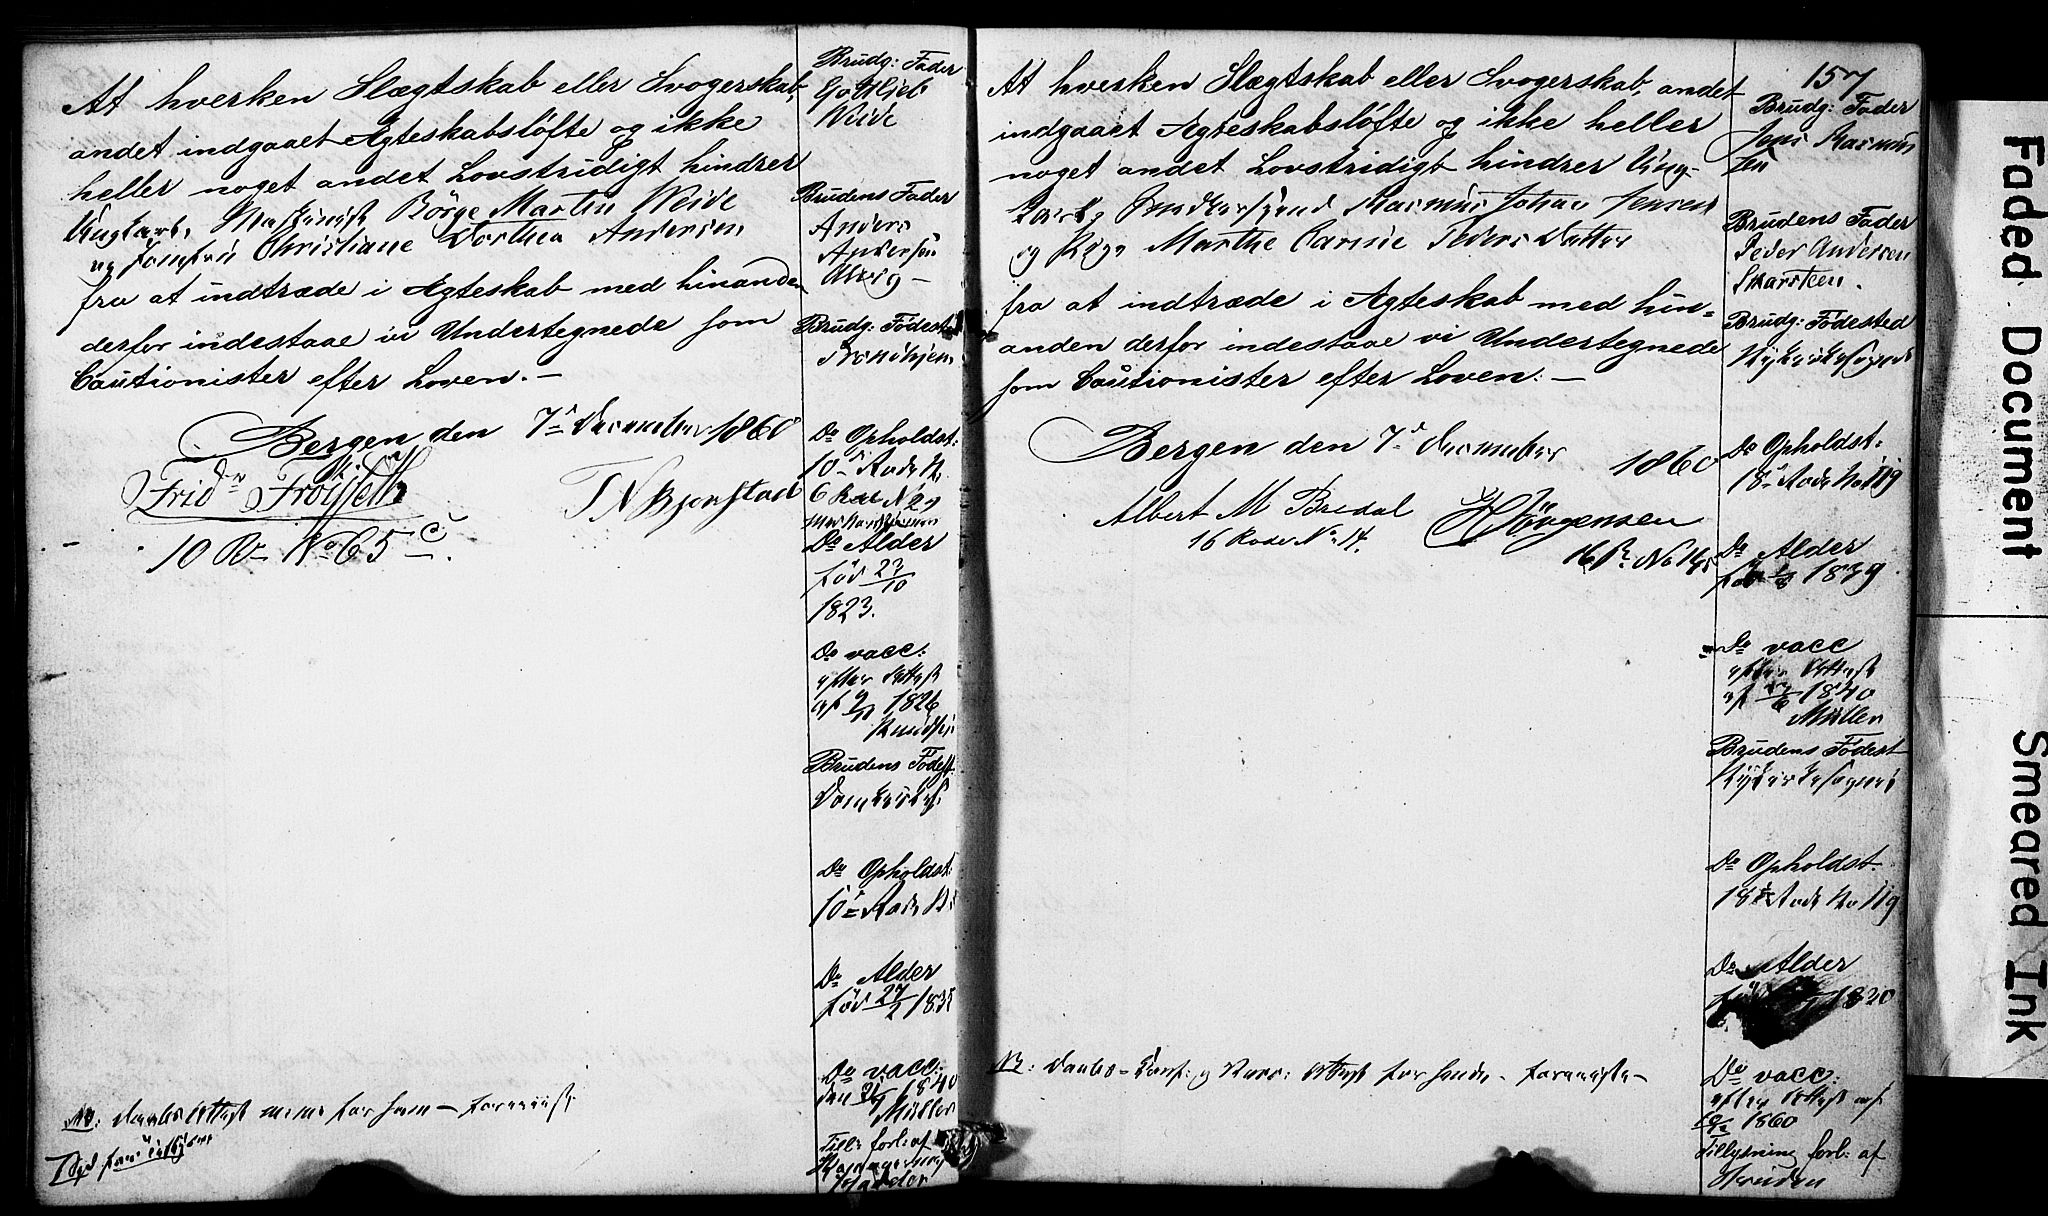 At hverken Slægtskab eller Svogerskab,
andet indgaaet Ægteskabsløfte og ikke
heller noget andet Lovstridigt hindrer
Ungkarl, Maskinist Börge Martin Weide
og Jomfrü Christiane Dorthea Andersen
fra at indtræde i Ægteskab med hinanden
derfor indestaae vi Undertegnede som
Caütionister efter Loven. —
Bergen den 7de December 1860
Frid Frøisseth T N Bjørnstad
10 R No 65 c.
NB: Daabs Attest forevüst
Brudg: Fader
Gottlieb
Weide
Brudens Fader
Anders
Andersen
Brudg: Födest:
Trondhjem
Do Opholdst:
10de Rode N
6 Rode No 29
Do Alder
föd 23/10
1823.
Do vacc:
efter Attest
af 9/11 1826
Knudsen
Brudens Födest:
Domkirkes:
Do Opholdst:
10de Rode N
Do Alder
föd 27/2 1835
Do vacc:
den 1840
Müller
Till: forl: af
157
At hverken Slægtskab eller Svogerskab, andet
indgaaet Ægteskabsløfte og ikke heller
noget andet Lovstridigt hindrer Ung-
karl, Rasmus Johan Jensen
og Pige Marthe Peders Datter
fra at indtræde i Ægteskab med hin=
anden derfor indestaae vi Undertegnede
som Caütionister efter Loven: —
Bergen den 7de December 1860
Albert M Bredal H Jörgensen
16 Rode No 14. 16 R No 14
NB: Daabs- Conf: og Vacc: Attest for hende forevüste —
Brudg: Fader
Jens Rasmüs
sen
Brudens Fader
Peder Andersen
Skarsteen.
Brudg: Födested
Nykirkesognet
Do Opholdst:
18de Rode No 119
Do Alder
föd 1839
Do vacc
efter Attest
af 1840
Müller
Brudens Födest
Nykirkesognet
Do Opholdst:
18de Rode No 119
Do Alder
Do vacc:
efter Attest af
1860
Tillysning forl: af
Bruden
Faded Document
Smeared Ink